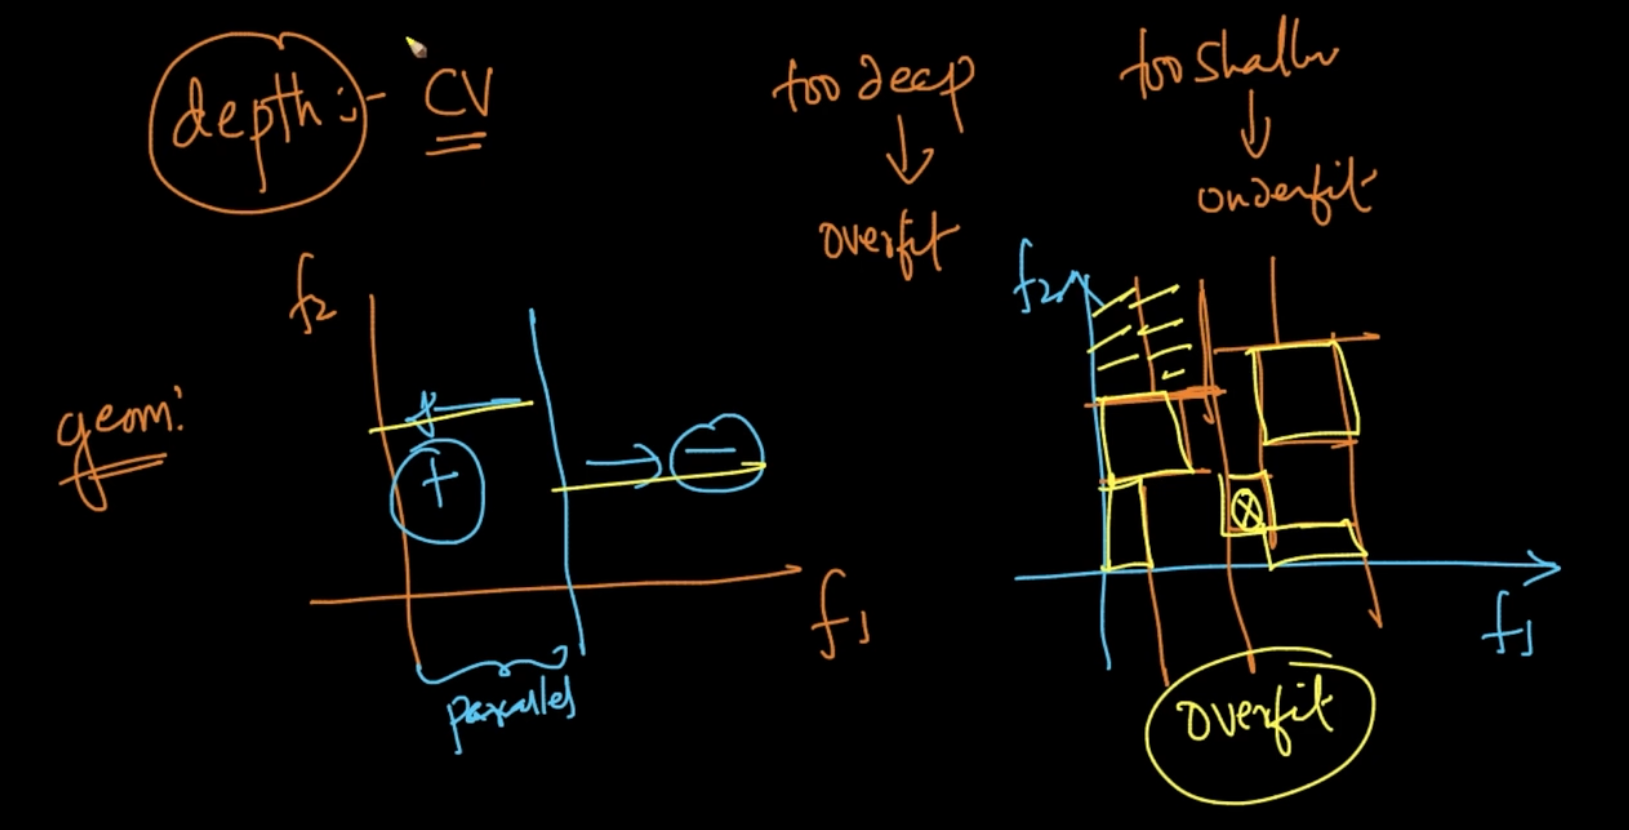 depth :- CV
too deep
↓
overfit
too shallow
↓
underfit
geom:
f2
+
−
f1
parallel
f2
x
f1
overfit